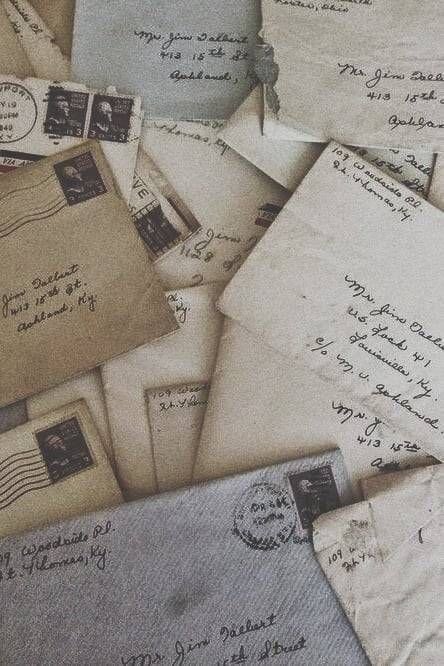 Mr. Jim Talbert
413 15th St.
Ashland, Ky.
Ohio
Mr. Jim Talbert
413 15th
Ashland
1949
KY
3
3
Thomas, Ky.
109 Woodside Pl.
Ft. Thomas, Ky.
Jim Talbert
413 15th St.
Ashland, Ky.
Jim
Mr. Jim Talbert
U.S. Lock 41
Louisville, Ky.
c/o M. V. Ashland
Mr. J
413 15th
Ky.
109 Wood
Ft. Thom
Woodside Pl.
Ft. Thomas, Ky.
109
Mr Jim Talbert
15th Street